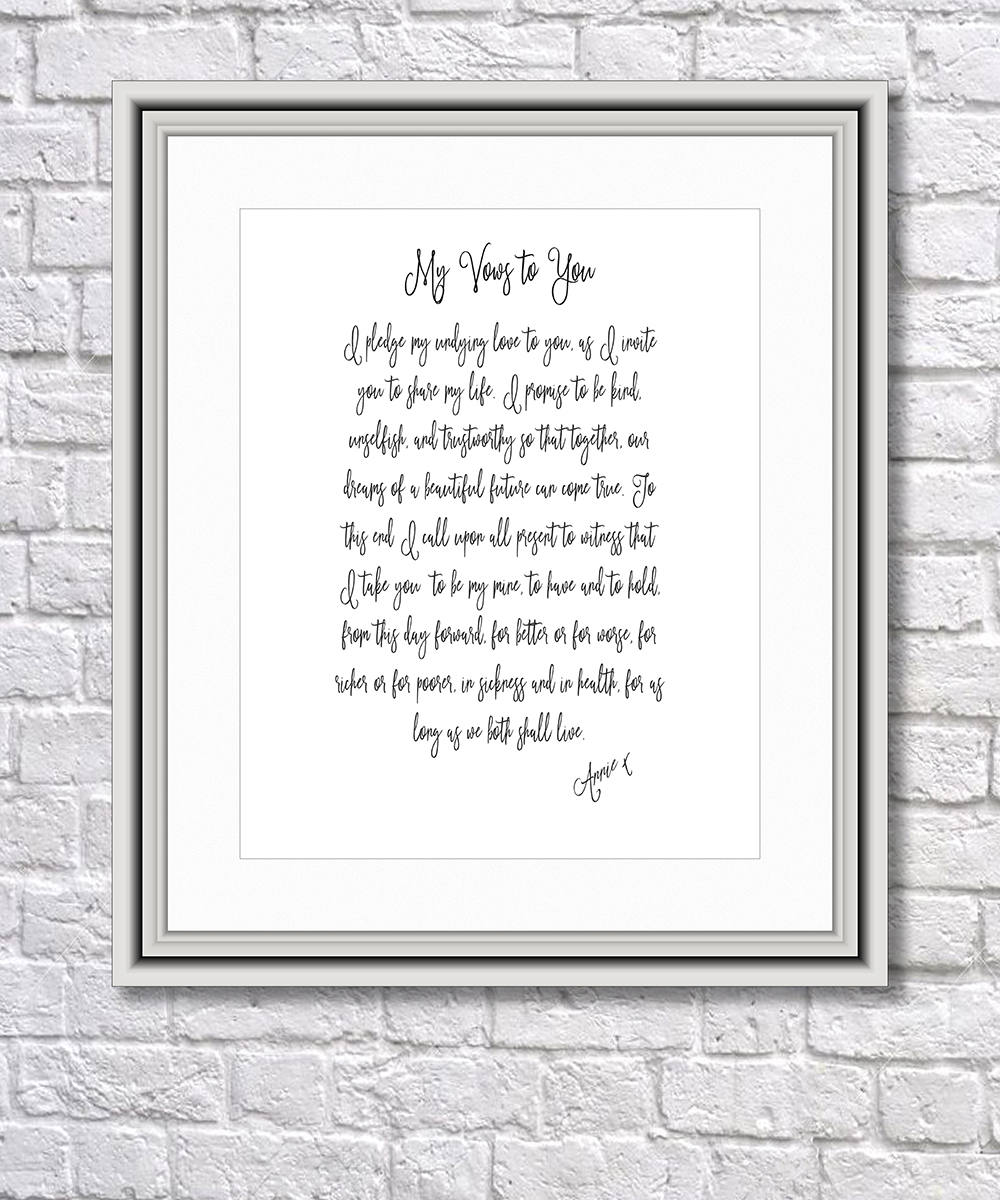 My Vows to You
I pledge my undying love to you, as I invite
you to share my life. I promise to be kind,
unselfish, and trustworthy so that together, our
dreams of a beautiful future can come true. To
this end I call upon all present to witness that
I take you to be my mine, to have and to hold,
from this day forward, for better or for worse, for
richer or for poorer, in sickness and in health, for as
long as we both shall live.
Annie x